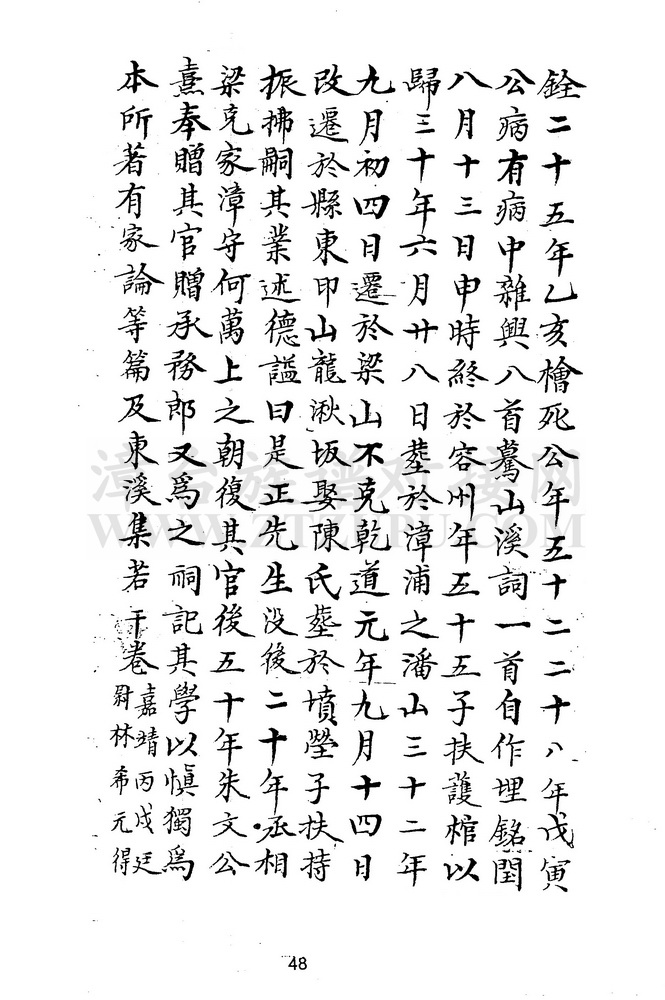 銓二十五年乙亥檜死公年五十二二十八年戊寅
公病有病中雜興八首驀山溪詞一首自作埋銘閏
八月十三日申時終於容州年五十五子扶護棺以
歸三十年六月廿八日塟於漳浦之潘山三十二年
九月初四日遷於梁山不克乾道元年九月十四日
改遷於縣東印山龍湫坂娶陳氏塟於墳塋子扶持
振拂嗣其業述德謚曰是正先生没後二十年丞相
梁克家漳守何萬上之朝復其官後五十年朱文公
熹奉贈其官贈承務郎又爲之祠記其學以慎獨爲
本所著有家論等篇及東溪集若干卷嘉靖丙戌廷
尉林希元得
漳台族譜对接网
WWW.ZTZUPU.COM
48